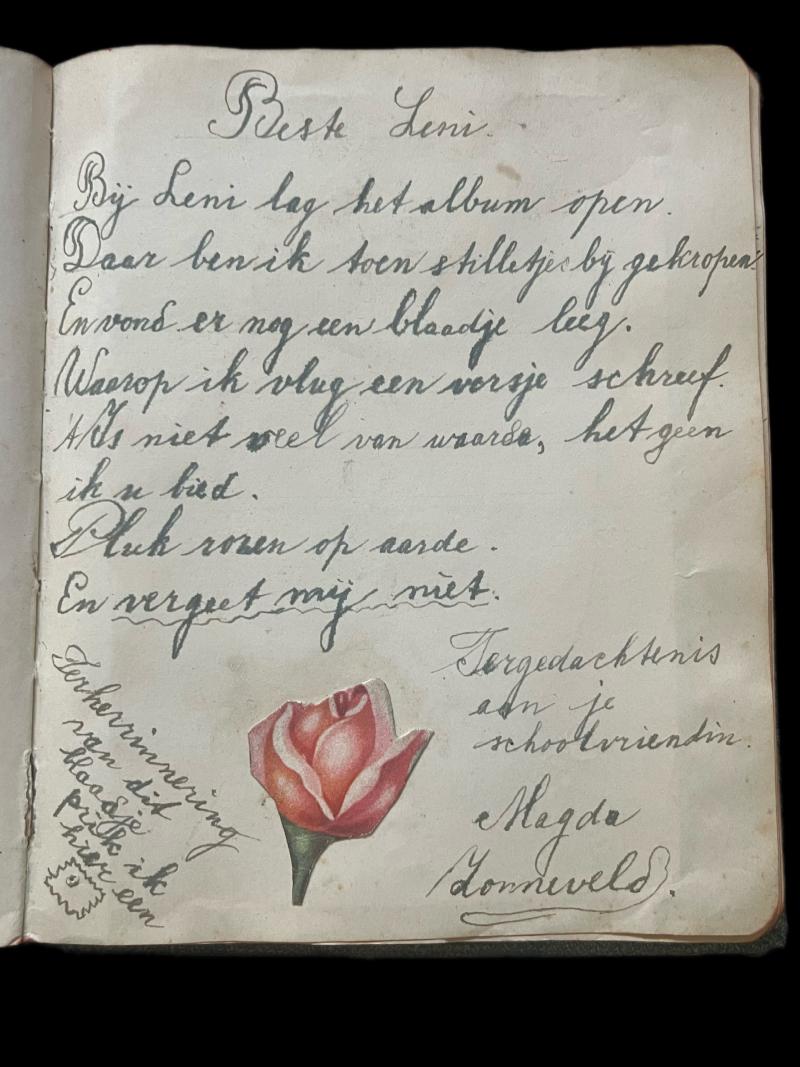 Beste Leni.
Bij Leni lag het album open.
Daar ben ik toen stilletjes bij gekropen.
En vond er nog een blaadje leeg.
Waarop ik vlug een versje schreef.
't Is niet veel van waarde, het geen
ik u bied.
Pluk rozen op aarde.
En vergeet mij niet.
Tergedachtenis
aan je
schoolvriendin.
Magda
Zonneveld.
Terherrinnering
van dit
blaadje
prik ik
hier een